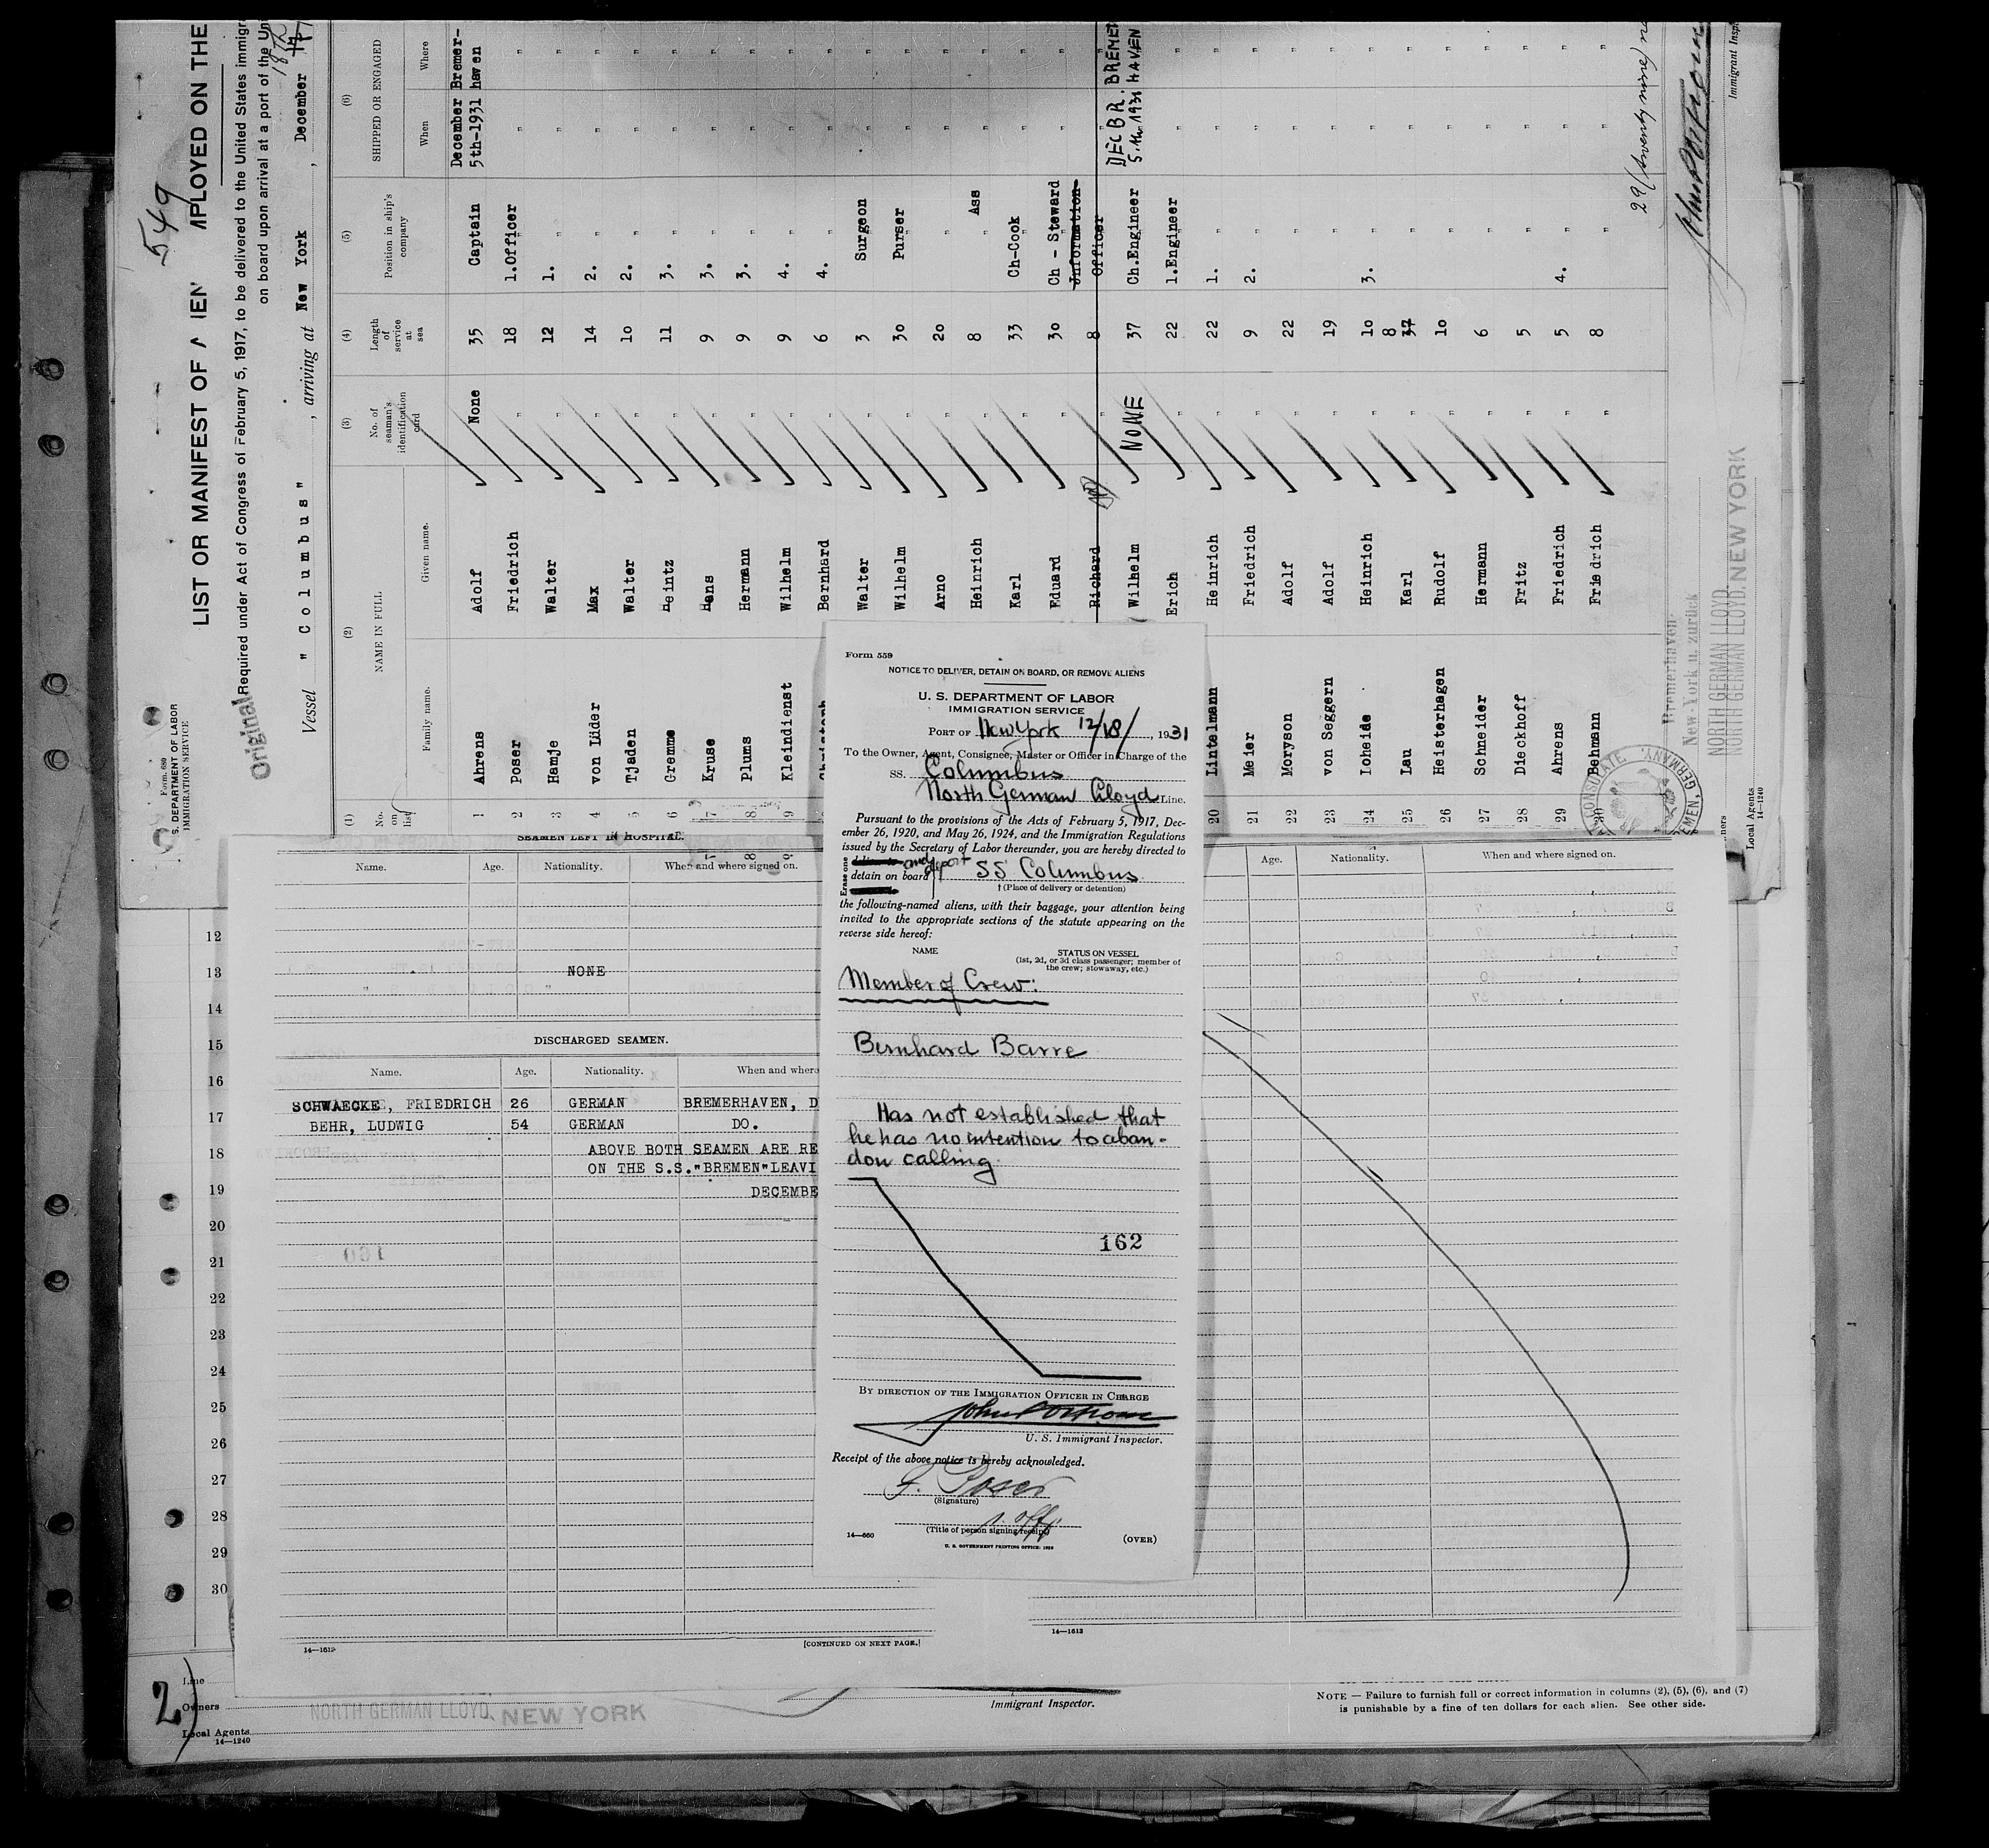 549
LIST OR MANIFEST OF
MPLOYED ON THE
Form 680
S. DEPARTMENT OF LABOR
IMMIGRATION SERVICE
Original
Required under Act of Congress of February 5, 1917, to be delivered to the United States
on board upon arrival at a port of the
Vessel "Columbus", arriving at New York, December
18th
(1) (2) (3) (4) (5) (6)
No. on list NAME IN FULL No. of seaman's identification card Length of service at sea Position in ship's company SHIPPED OR ENGAGED
Family name. Given name. When Where
1 Ahrens Adolf None 35 Captain December 5th-1931 Bremer-haven
2 Poser Friedrich " 18 1.Officer " "
3 Hamje Walter " 12 1. " " "
4 von Lüder Max " 14 2. " " "
5 Tjaden Walter " 10 2. " " "
6 Gremme Heintz " 11 3. " " "
7 Kruse Hans " 9 3. " " "
8 Plums Hermann " 9 3. " " "
9 Kleindienst Wilhelm " 9 4. " " "
Bernhard " 6 4. " " "
Walter " 3 Surgeon " "
Wilhelm " 30 Purser " "
Arno " 20 " " "
Heinrich " 8 " Ass " "
Karl " 33 Ch-Cook " "
Eduard " 30 Ch - Steward " "
Richard " 8 Information Officer " "
Wilhelm NONE 37 Ch.Engineer DECBR. 5.th.1931 BREMERHAVEN
Erich " 22 1.Engineer " "
20 Lintelmann Heinrich " 22 1. " " "
21 Meier Friedrich " 9 2. " " "
22 Moryson Adolf " 22 " " "
23 von Seggern Adolf " 19 " " "
24 Ioheide Heinrich " 10 3. " " "
25 Lau Karl " 8 37 " " "
26 Heisterhagen Rudolf " 10 " " "
27 Schneider Hermann " 6 " " "
28 Dieckhoff Fritz " 5 " " "
29 Ahrens Friedrich " 5 4. " " "
30 Behmann Friedrich " 8 " " "
29 (twenty nine)
Immigrant
Bremerhaven-
New-York u. zurück
NORTH GERMAN LLOYD,
NORTH GERMAN LLOYD, NEW YORK
Local Agents
14—1240
Form 559
NOTICE TO DELIVER, DETAIN ON BOARD, OR REMOVE ALIENS
U. S. DEPARTMENT OF LABOR
IMMIGRATION SERVICE
PORT OF New York 12/18/, 1931
To the Owner, Agent, Consignee, Master or Officer in Charge of the
SS. Columbus
North German Lloyd Line.
Pursuant to the provisions of the Acts of February 5, 1917, Dec-
ember 26, 1920, and May 26, 1924, and the Immigration Regulations
issued by the Secretary of Labor thereunder, you are hereby directed to
Erase one
detain on board and deport SS Columbus
† (Place of delivery or detention)
the following-named aliens, with their baggage, your attention being
invited to the appropriate sections of the statute appearing on the
reverse side hereof:
NAME STATUS ON VESSEL
(1st, 2d, or 3d class passenger; member of
the crew; stowaway, etc.)
Member of Crew:
Bernhard Barre
Has not established that
he has no intention to aban-
don calling.
162
BY DIRECTION OF THE IMMIGRATION OFFICER IN CHARGE
U. S. Immigrant Inspector.
Receipt of the above notice is hereby acknowledged.
F. Poser
(Signature)
1. Off.
(Title of person signing receipt)
14—660
(OVER)
U. S. GOVERNMENT PRINTING OFFICE:
SEAMEN LEFT IN HOSPITAL.
Name. Age. Nationality. When and where signed on.
NONE
DISCHARGED SEAMEN.
Name. Age. Nationality. When and where
SCHWAECKE, FRIEDRICH 26 GERMAN BREMERHAVEN, D
BEHR, LUDWIG 54 GERMAN DO.
ABOVE BOTH SEAMEN ARE RE
ON THE S.S."BREMEN"LEAVI
DECEMBE
[CONTINUED ON NEXT PAGE.]
Age. Nationality. When and where signed on.
14—1613
12
13
14
15
16
17
18
19
20
21
22
23
24
25
26
27
28
29
30
2)
Line
Owners NORTH GERMAN LLOYD, NEW YORK
Local Agents
14—1240
Immigrant Inspector.
NOTE — Failure to furnish full or correct information in columns (2), (5), (6), and (7)
is punishable by a fine of ten dollars for each alien. See other side.